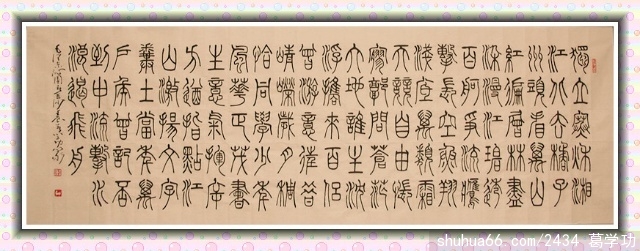 獨立寒秋湘
江北去橘子
洲頭看萬山
紅遍層林盡
染漫江碧透
百舸爭流鷹
擊長空魚翔
淺底萬類霜
天競自由悵
寥廓問蒼茫
大地誰主沉
浮攜來百侶
曾遊憶往昔
崢嶸歲月稠
恰同學少年
風華正茂書
生意氣揮斥
方遒指點江
山激揚文字
糞土當年萬
戶侯曾記否
到中流擊水
浪遏飛舟
shuhua66.com/2434 葛学功